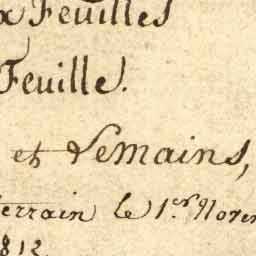 x Feuilles
Feuille.
et Lemains,
terrain le 1.er Novem
1812.